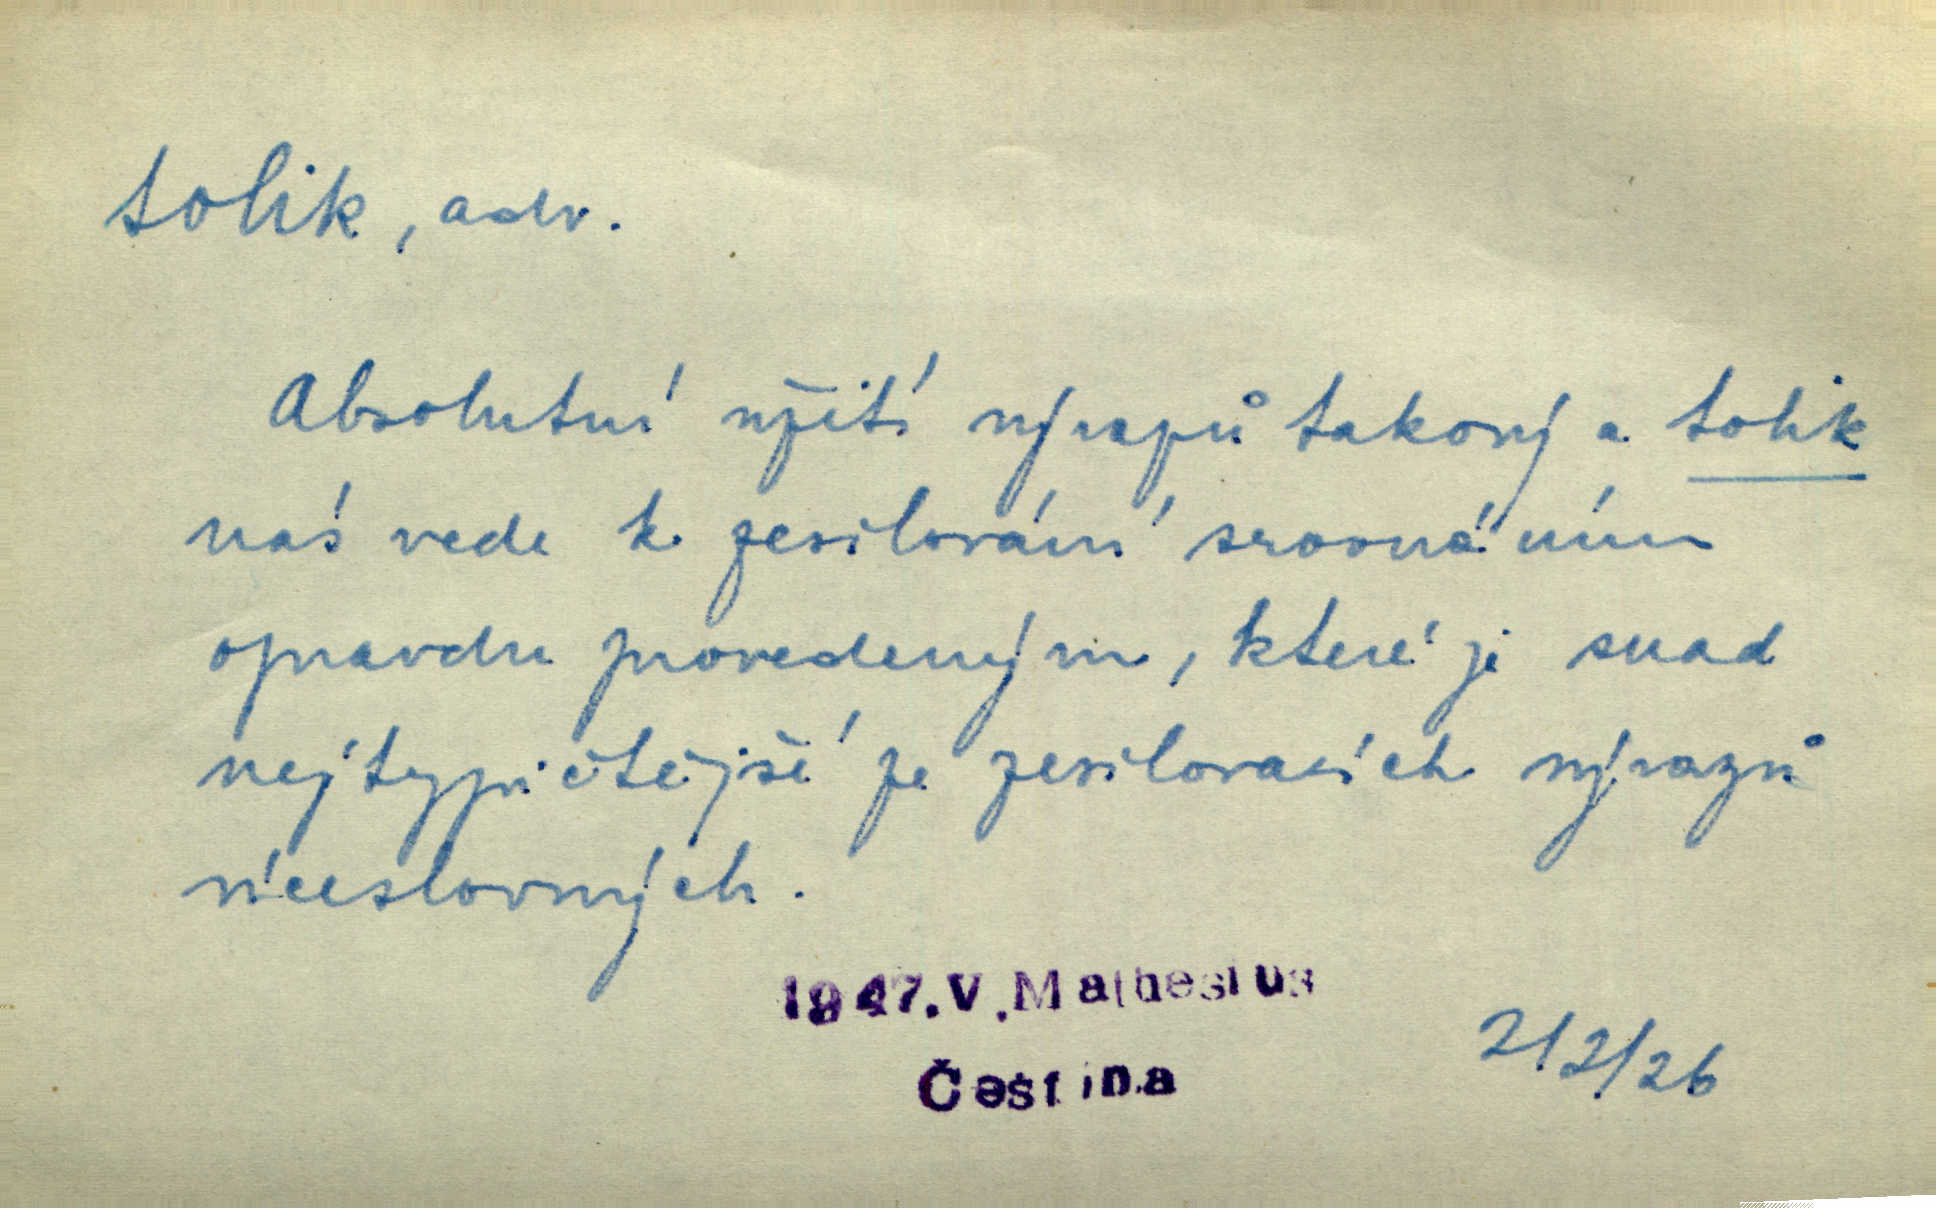 tolik, adv.
Absolutní užití výrazů takový a tolik
nás vede k zesilování srovnáním
opravdu provedeným, které je snad
nejtypičtější ze zesilovacích výrazů
víceslovných.
1947.V.Mathesius
Čeština
212/26